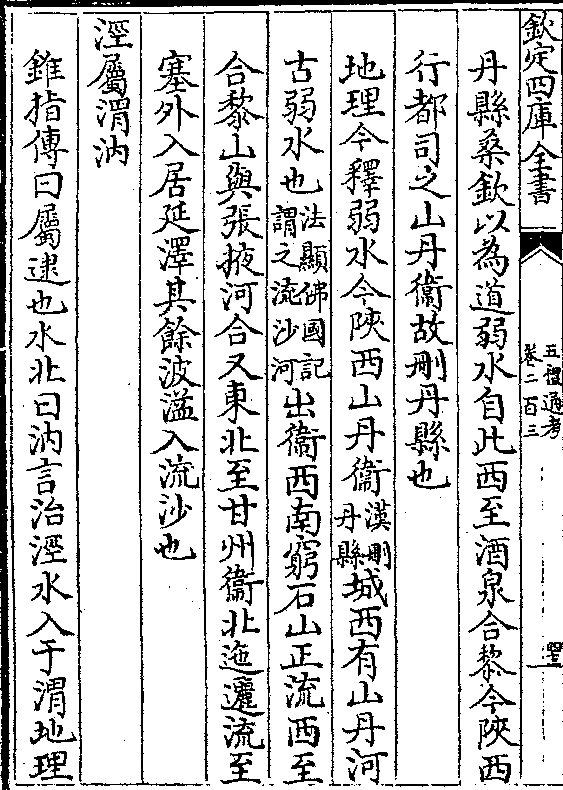 欽定四庫全書
五禮通考
卷二百三
丹縣桑欽以為道弱水自此西至酒泉合黎今陜西
行都司之山丹衞故刪丹縣也
地理今釋弱水今陜西山丹衞漢刪丹縣城西有山丹河
古弱水也法顯佛國記謂之流沙河出衞西南窮石山正流西至
合黎山與張掖河合又東北至甘州衞北迤邐流至
塞外入居延澤其餘波溢入流沙也
涇屬渭汭
錐指傳曰屬逮也水北曰汭言治涇水入于渭地理